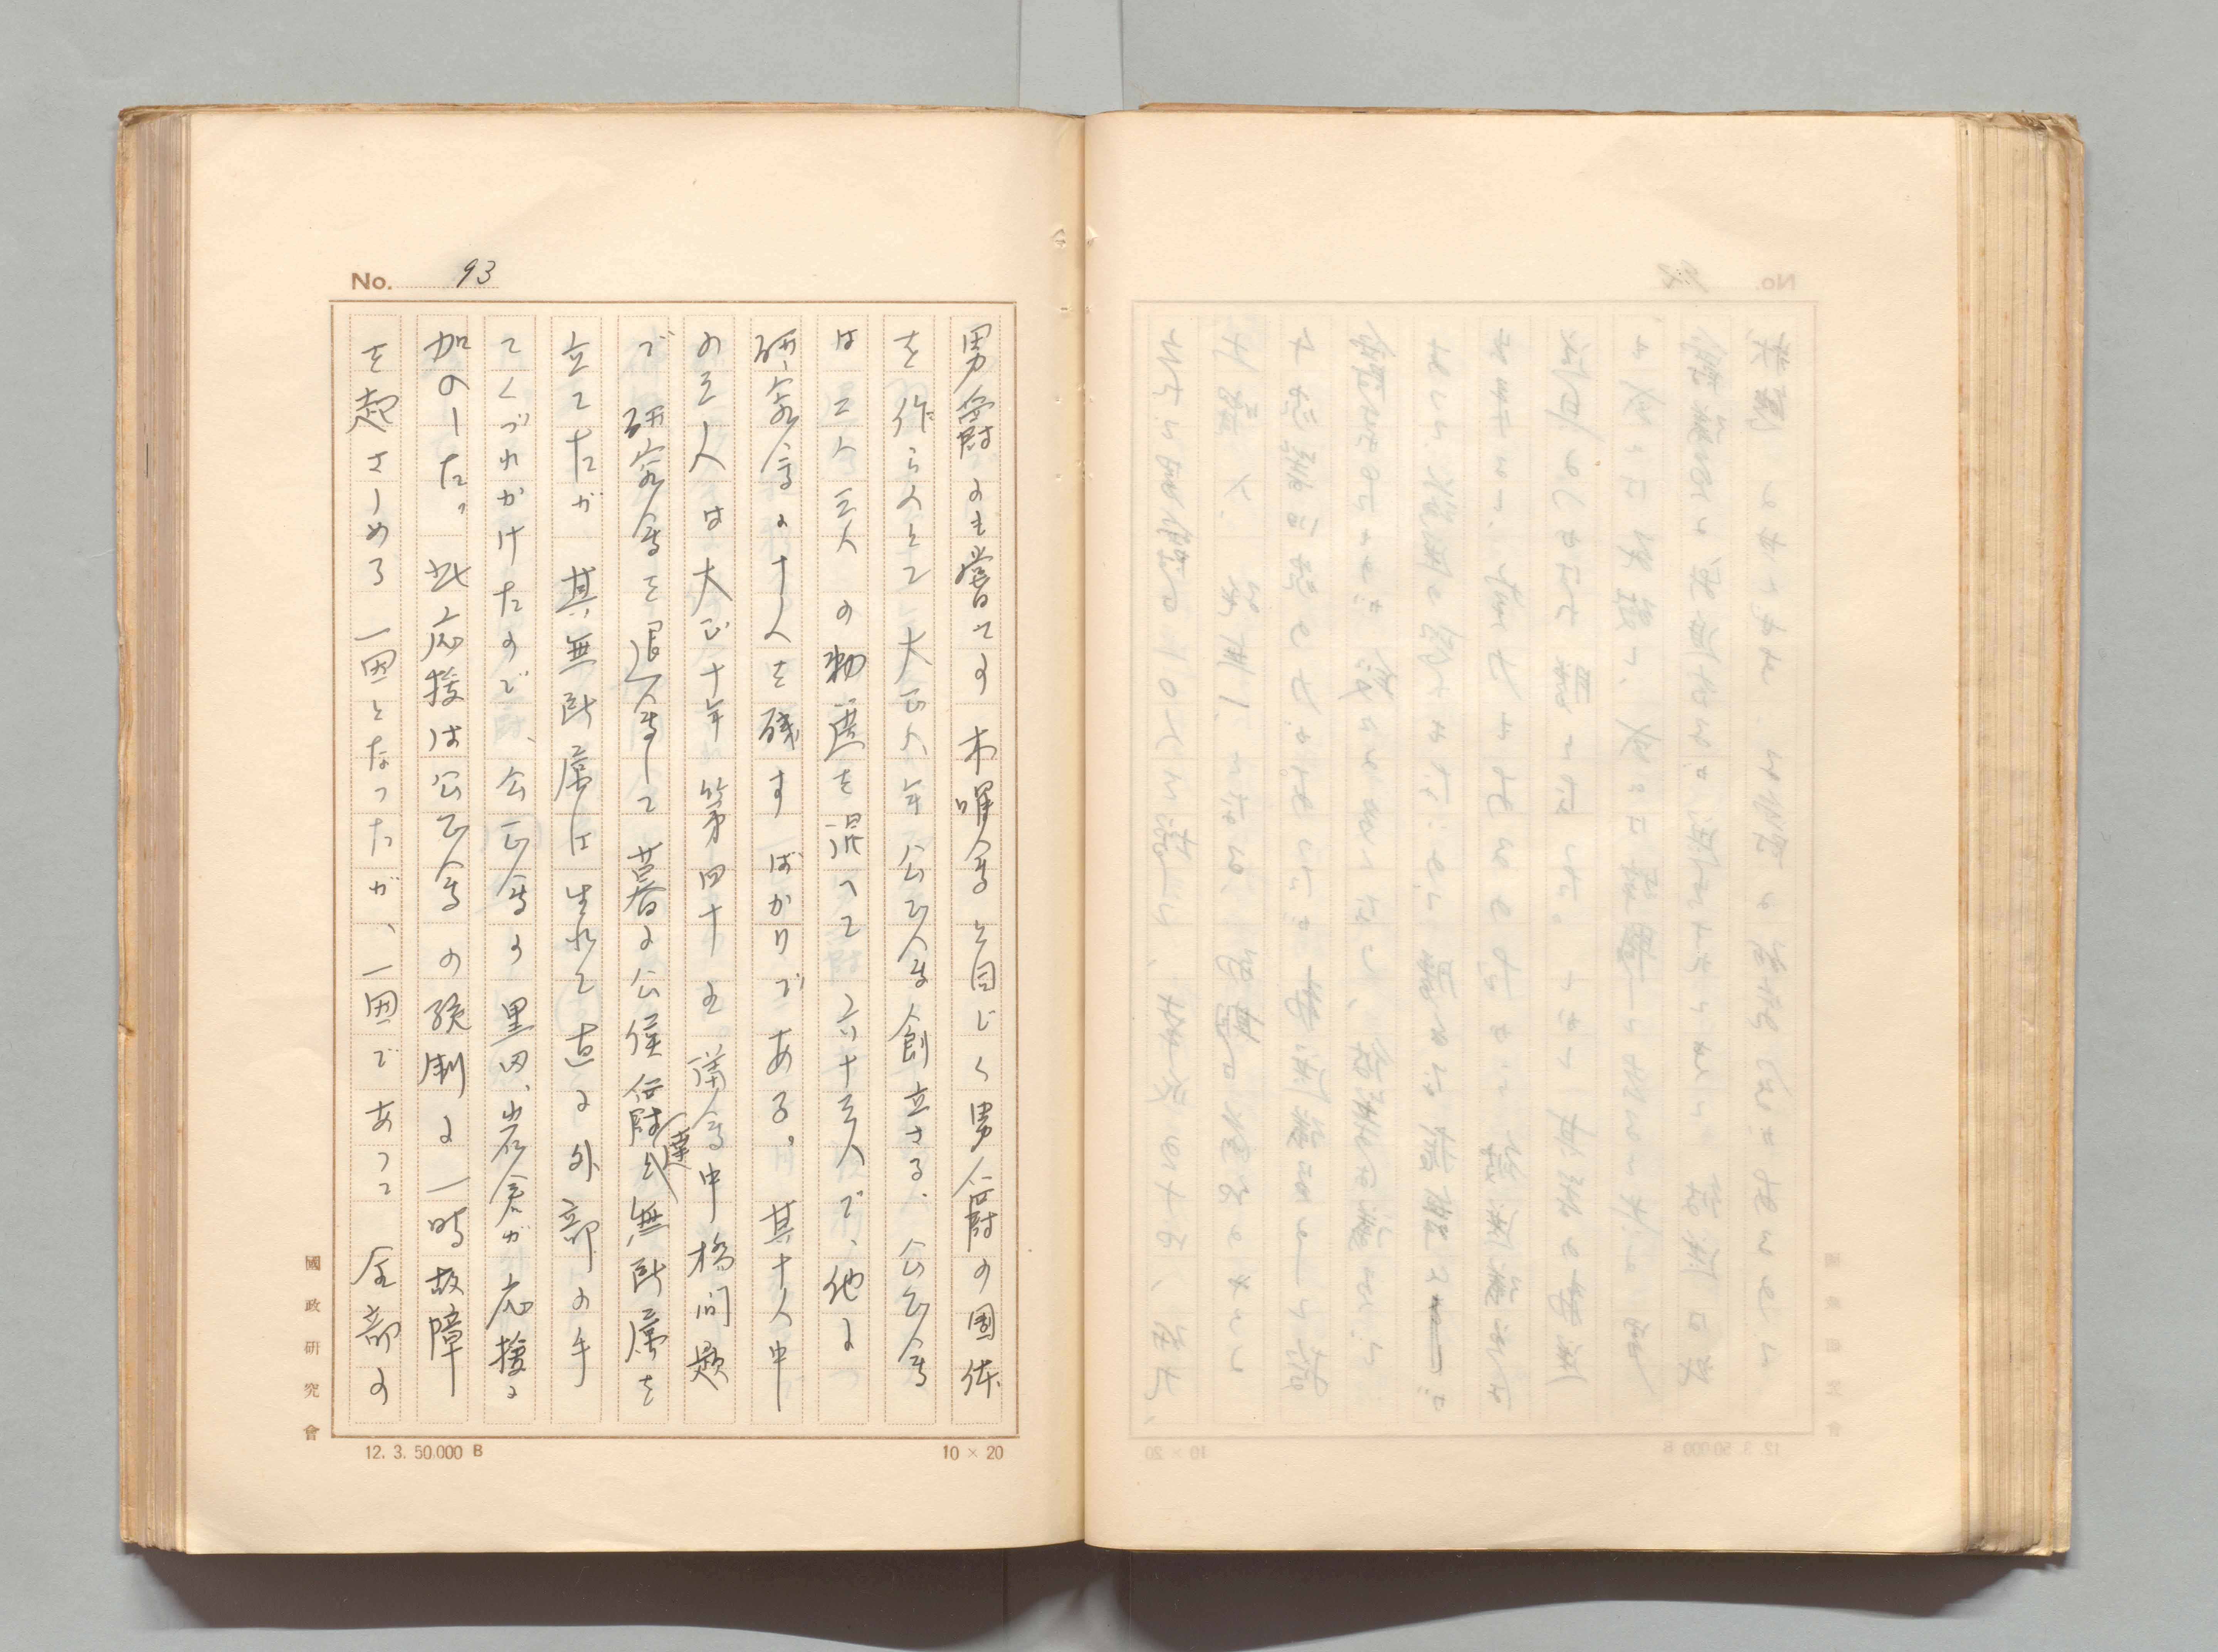 No. 93
男爵のも嘗ての木曜会と同じく男爵の団体
を作らんとて大正八年公正会創立さる、公正会
は二人三人の勅選を混へて六十三人で、他は
研究会に十人を残すばかりである。其十人中
の三人は大正十年第四十四議会中橋問題
で研究会を退会して暮に公侯爵達無所属を
立てたが其無所属は生れて直に外部の手
てくづれかけたので、公正会の黒田、岩倉が応援に
加のした。此応援は公正会の統制に一時故障
を起さしめる一因となつたが、一因であつて全部の
國政研究會
12. 3. 50,000 B
10 × 20